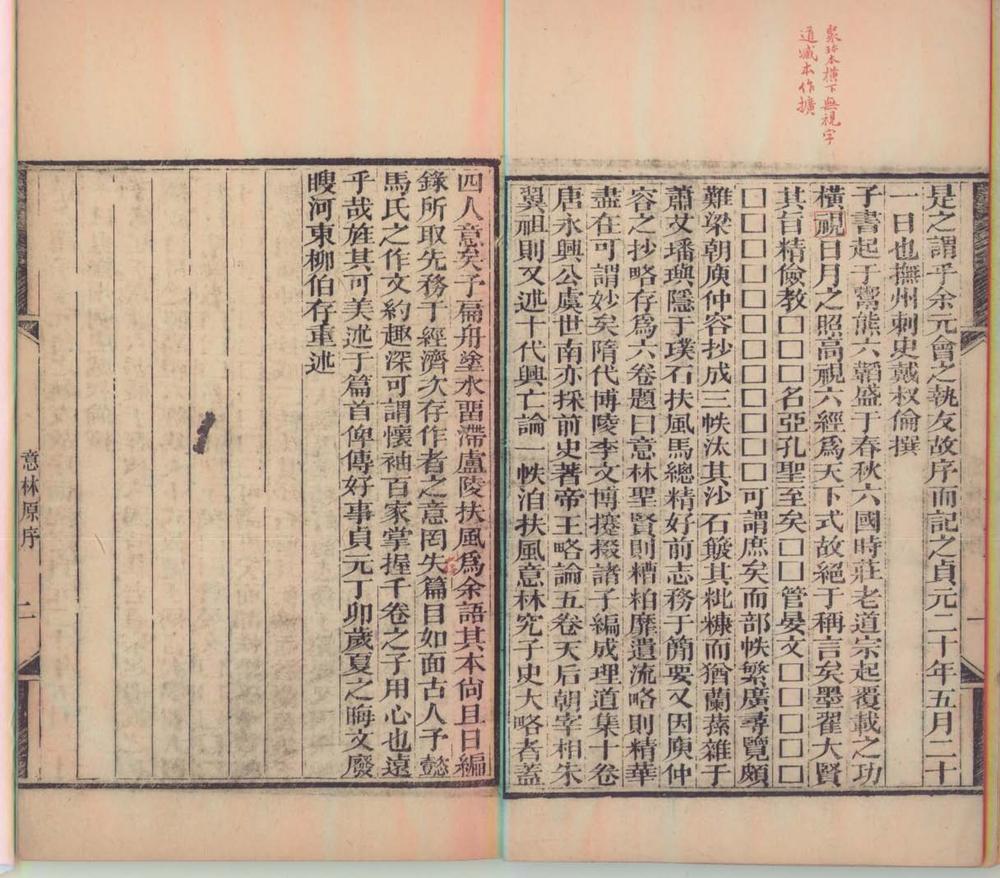 聚珍本橫下無視字
道藏本作擴
是之謂乎余元會之執友故序而記之貞元二十年五月二十
一日也撫州刺史戴叔倫撰
子書起于鬻熊六韜盛于春秋六國時莊老道宗起覆載之功
橫視日月之照高視六經爲天下式故絕于稱言矣墨翟大賢
其旨精儉教□□名亞孔聖至矣□□管晏文□□□□□
□□□□□□□□□□□□可謂庶矣而部帙繁廣尋覽頗
難梁朝庾仲容抄成三帙汰其沙石簸其粃糠而猶蘭蓀雜于
蕭艾璠璵隱于璞石扶風馬總精好前志務于簡要又因庾仲
容之抄略存爲六卷題曰意林聖賢則糟粕靡遺流略則精華
盡在可謂妙矣隋代博陵李文博攓掇諸子編成理道集十卷
唐永興公虞世南亦採前史著帝王略論五卷天后朝宰相朱
翼祖則又述十代興亡論一帙洎扶風意林究子史大略者蓋
四人意矣予扁舟塗水畱滯廬陵扶風爲余語其本尙且日編
錄所取先務于經濟次存作者之意罔失篇目如面古人予懿
馬氏之作文約趣深可謂懷袖百家掌握千卷之子用心也遠
乎哉旌其可美述于篇首俾傳好事貞元丁卯歲夏之晦文廢
瞍河東柳伯存重述
意林原序
二